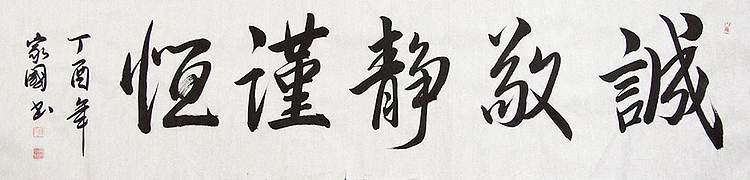 誠敬静謹恒
丁酉年
家國书